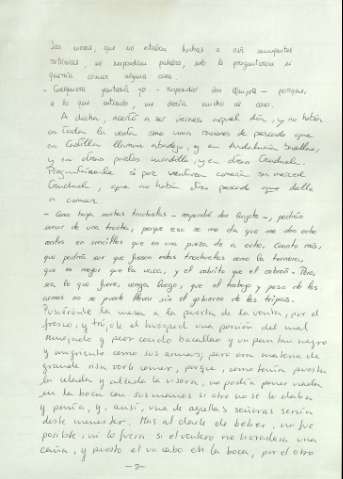 Las mozas, que no estaban hechas a oír semejantes
retóricas, no respondían palabra; solo le preguntaron si
quería comer alguna cosa.
- Cualquiera yantaría yo - respondió don Quijote -, porque,
a lo que entiendo, me haría mucho al caso.
A dicha, acertó a ser viernes aquel día, y no había
en toda la venta sino unas raciones de pescado que
en Castilla llaman abadejo, y en Andalucía bacallao,
y en otras partes curadillo, y en otras truchuela.
Preguntáronle si por ventura comería su merced
truchuela, que no había otro pescado que dalle
a comer.
- Como haya muchas truchuelas - respondió don Quijote -, podrán
servir de una trucha, porque eso se me da que me den ocho
reales en sencillos que en una pieza de a ocho. Cuanto más,
que podría ser que fuesen estas truchuelas como la ternera,
que es mejor que la vaca, y el cabrito que el cabrón. Pero,
sea lo que fuere, venga luego, que el trabajo y peso de las
armas no se puede llevar sin el gobierno de las tripas.
Pusiéronle la mesa a la puerta de la venta, por el
fresco, y trújole el huésped una porción del mal
remojado y peor cocido bacallao y un pan tan negro
y mugriento como sus armas; pero era materia de
grande risa verle comer, porque, como tenía puesta
la celada y alzada la visera, no podía poner nada
en la boca con sus manos si otro no se lo daba
y ponía, y, ansí, una de aquellas señoras servía
deste menester. Mas al darle de beber, no fue
posible, ni lo fuera si el ventero no horadara una
caña, y puesto el un cabo en la boca, por el otro
- 2 -